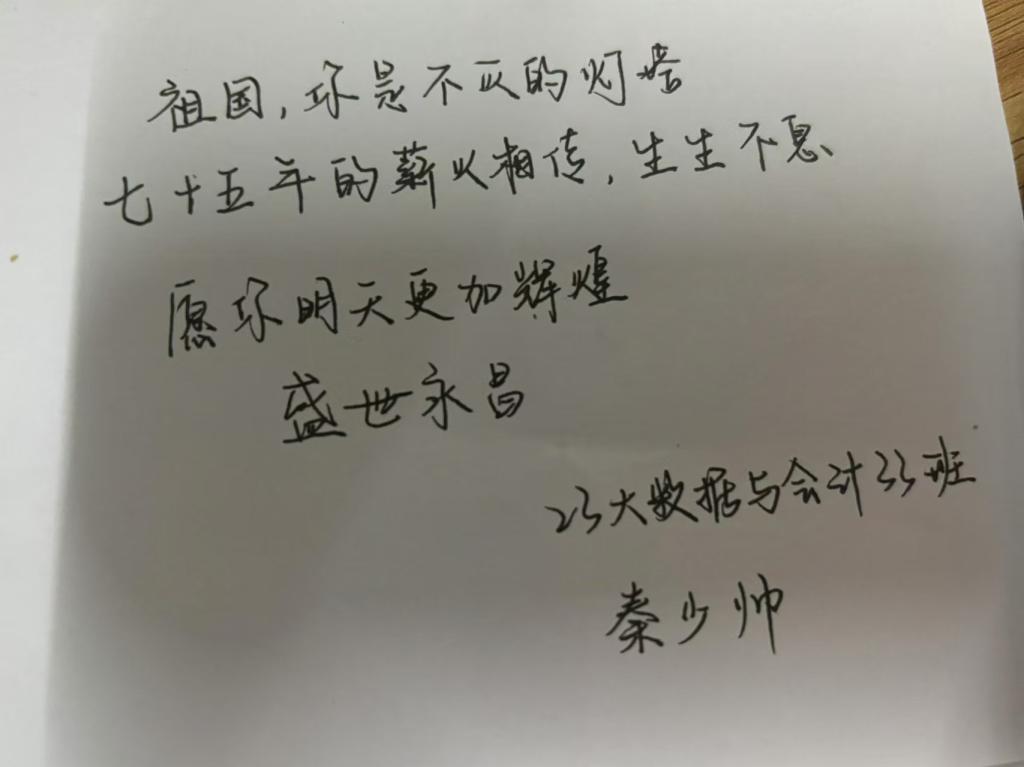 祖国，你是不灭的灯塔
七十五年的薪火相传，生生不息
愿你明天更加辉煌
盛世永昌
23大数据与会计33班
秦少帅